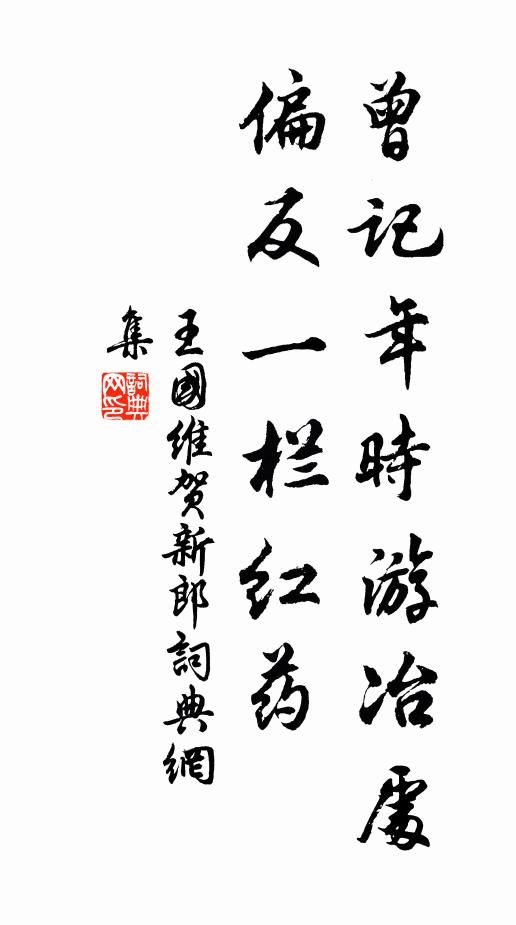 曾记年時游冶處
偏反一栏红药
王國维贺新郎詞典網
集
詞典网印